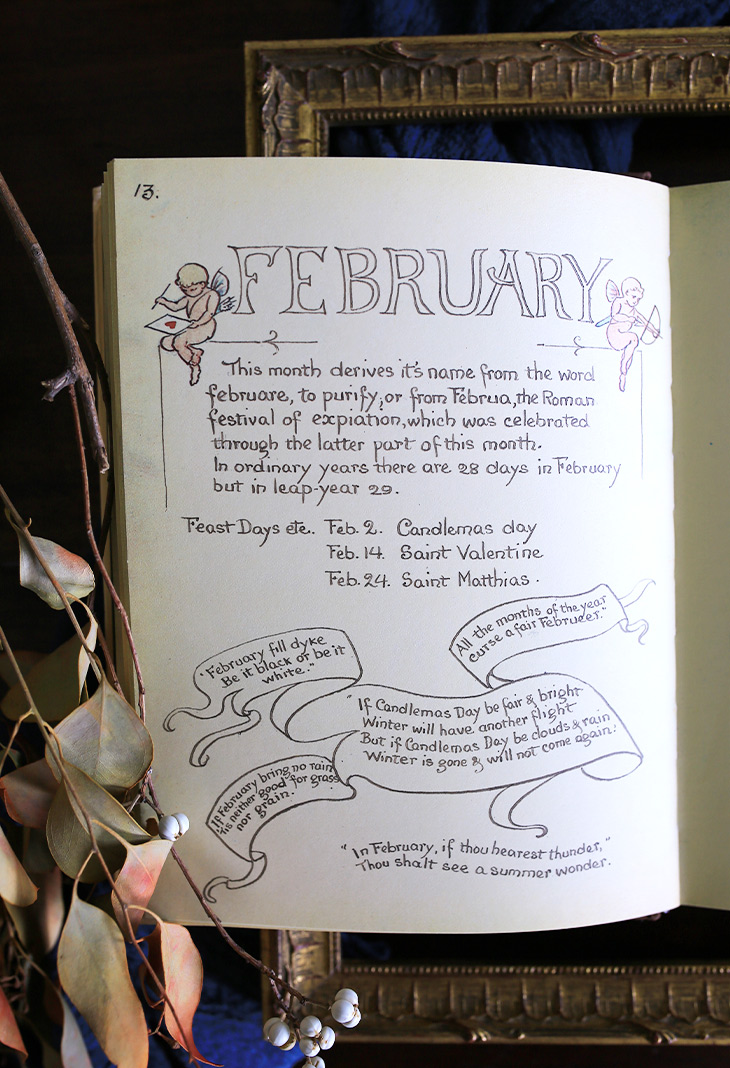 13.
FEBRUARY
This month derives it's name from the word
februare, to purify; or from Februa, the Roman
festival of expiation, which was celebrated
through the latter part of this month.
In ordinary years there are 28 days in February
but in leap-year 29.
Feast Days etc. Feb. 2. Candlemas day
Feb. 14. Saint Valentine
Feb. 24. Saint Matthias.
All the months of the year
curse a fair Februeer."
"February fill dyke
Be it black or be it
white."
"If Candlemas Day be fair & bright
Winter will have another flight
But if Candlemas Day be clouds & rain
Winter is gone & will not come again."
"If February bring no rain
'tis neither good for grass
nor grain."
"In February, if thou hearest thunder,"
Thou shalt see a summer wonder.